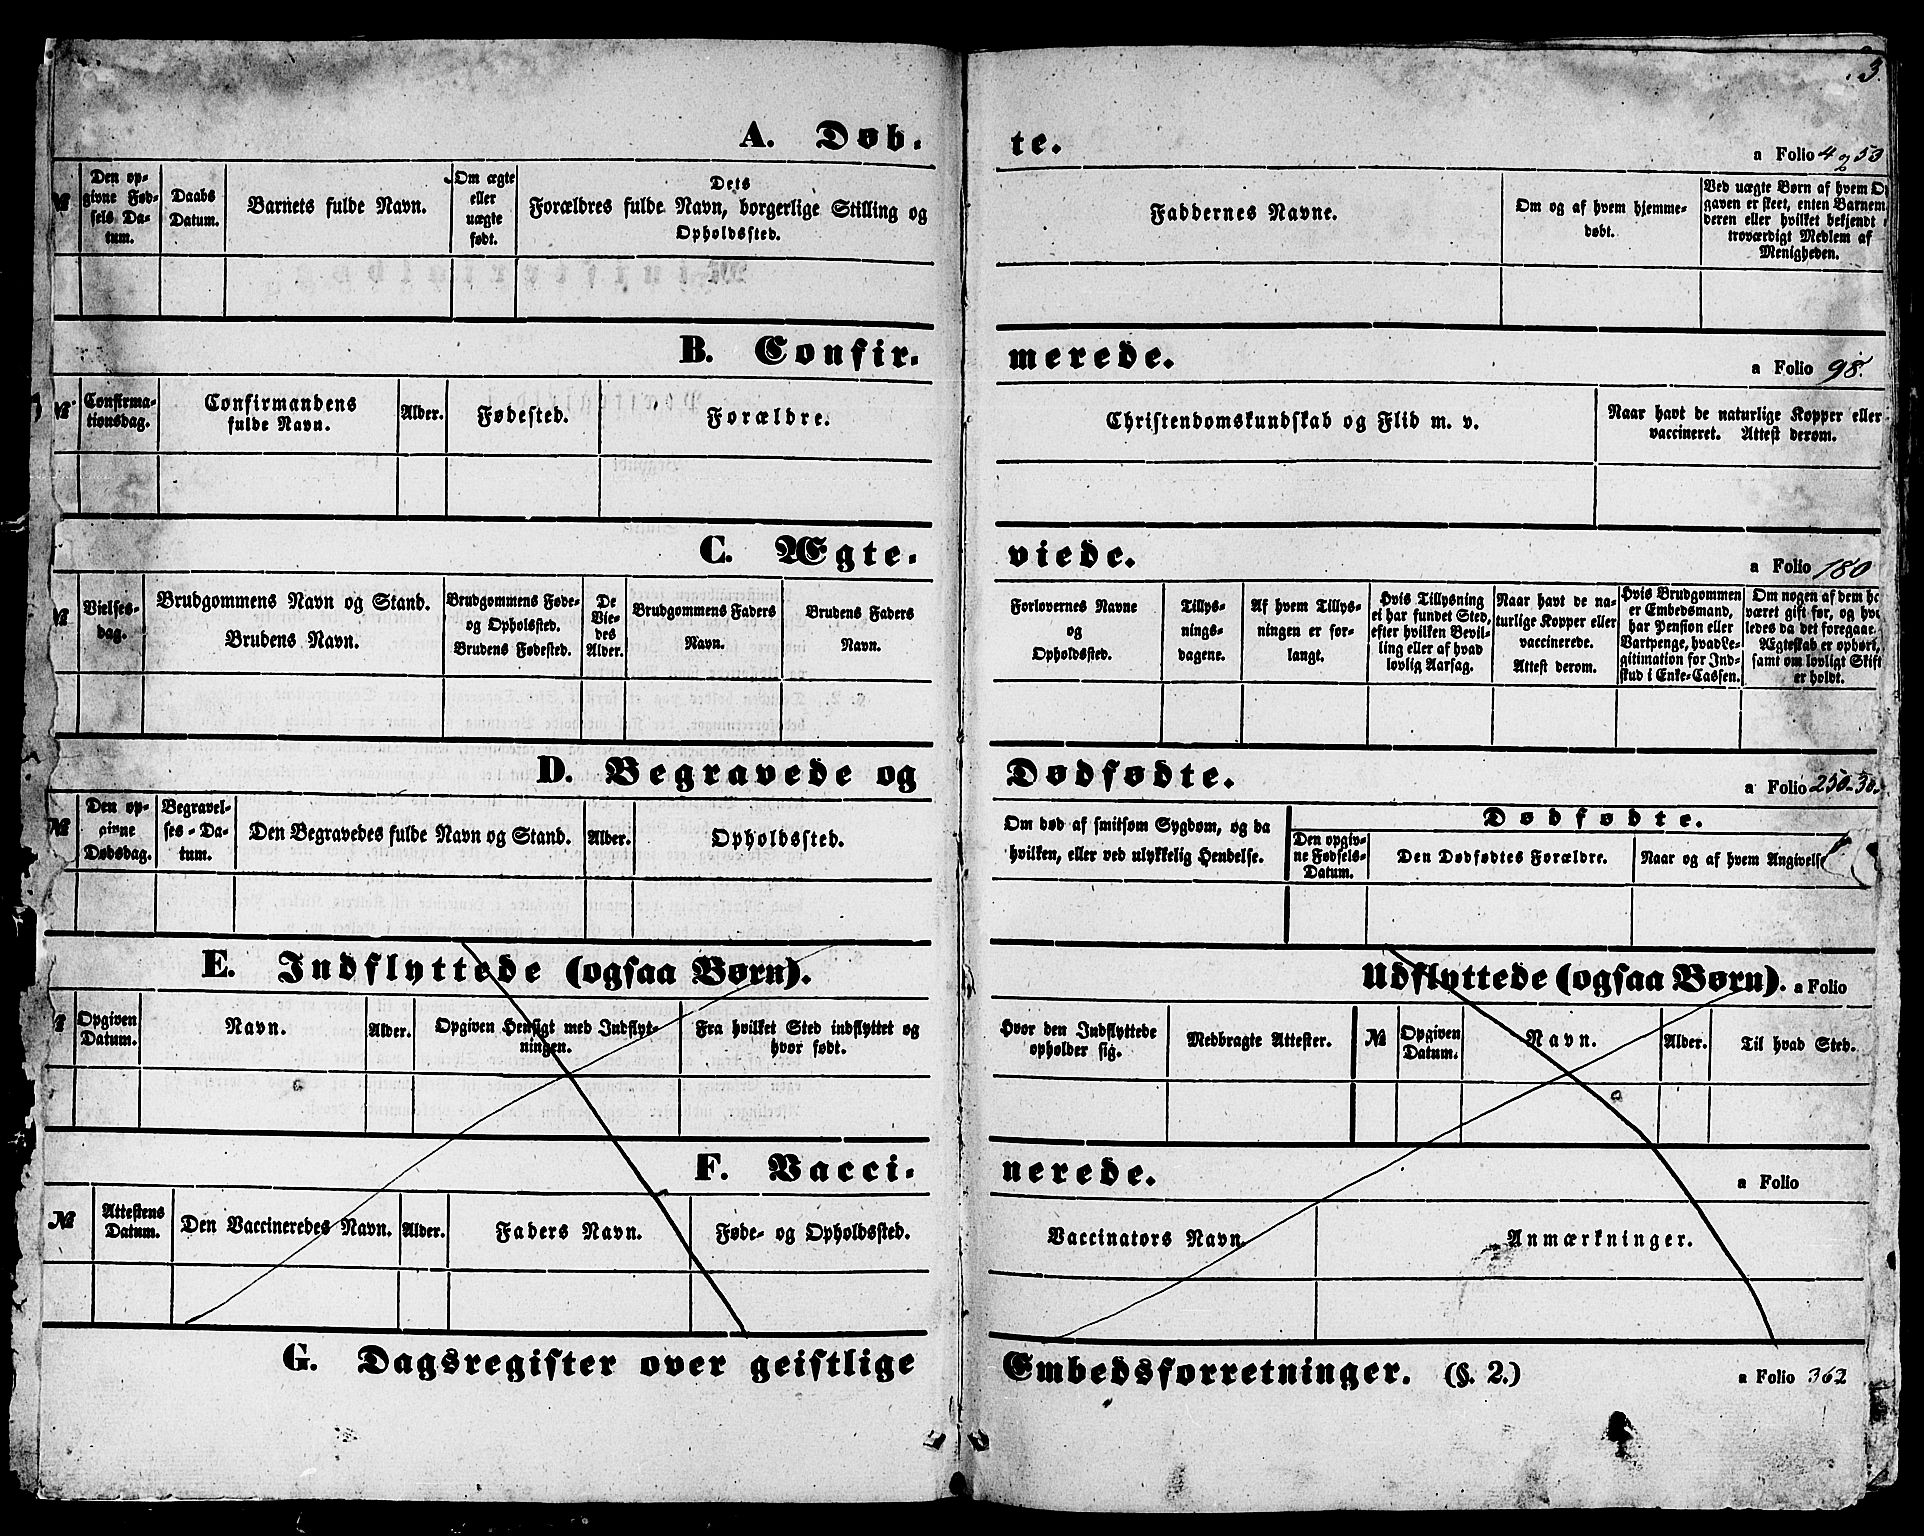 3.
A. Døb-te. a Folio 4
№
Den op-
givne Fød-
sels Da-
tum.
Daabs
Datum.
Barnets fulde Navn.
Om ægte
eller
uægte
født.
Dets
Forældres fulde Navn, borgerlige Stilling og
Opholdssted.
Faddernes Navne.
Om og af hvem hjemme-
døbt.
Ved uægte Børn af hvem
gaven er skeet, enten Barnem
deren eller hvilket bekjendt
troværdigt Medlem af
Menigheden.
B. Confir-merede. a Folio 98.
№
Confirma-
tionsdag.
Confirmandens
fulde Navn.
Alder.
Fødested.
Forældre.
Christendomskundskab og Flid m. v.
Naar havt de naturlige Kopper eller
vaccineret. Attest derom.
C. Ægte-viede. a Folio 180
№
Vielses-
dag.
Brudgommens Navn og Stand.
Brudens Navn.
Brudgommens Føde-
og Opholdssted.
Brudens Fødested.
De
Vie-
des
Alder.
Brudgommens Faders
Navn.
Brudens Faders
Navn.
Forlovernes Navne
og
Opholdssted.
Tillys-
nings-
dagene.
Af hvem Tillys-
ningen er for-
langt.
Hvis Tillysning
ei har fundet Sted,
efter hvilken Bevil-
ling eller af hvad
lovlig Aarsag.
Naar havt de na-
turlige Kopper eller
vaccinerede.
Attest derom.
Hvis Brudgommen
er Embedsmand,
har Pension eller
Vartpenge, hvad Le-
gitimation for Ind-
skud i Enke-Cassen.
Om nogen af dem h
været gift før, og hv
ledes da det foregaae
Ægteskab er ophørt,
samt om lovligt Skift
er holdt.
D. Begravede og Dødfødte. a Folio 250-30
№
Den op-
givne
Dødsdag.
Begravel-
ses-Da-
tum.
Den Begravedes fulde Navn og Stand.
Alder.
Opholdssted.
Om død af smitsom Sygdom, og da
hvilken, eller ved ulykkelig Hendelse.
Dødfødte.
Den opgiv-
ne Fødsels-
Datum.
Den Dødfødtes Forældre.
Naar og af hvem Angivelse
E. Indflyttede (ogsaa Børn). Udflyttede (ogsaa Børn). a Folio
Opgiven
Datum.
Navn.
Alder.
Opgiven Hensigt med Indflyt-
ningen.
Fra hvilket Sted indflyttet og
hvor født.
Hvor den Indflyttede
opholder sig.
Medbragte Attester.
№
Opgiven
Datum.
Navn.
Alder.
Til hvad Sted.
F. Vacci-nerede. a Folio
№
Attestens
Datum.
Den Vaccineredes Navn.
Alder.
Faders Navn.
Føde- og Opholdssted.
Vaccinators Navn.
Anmærkninger.
G. Dagsregister over geistlige Embedsforretninger. (§. 2.) a Folio 362